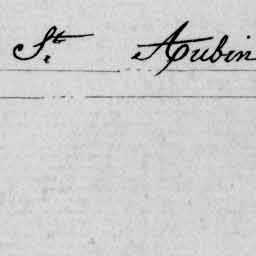 St. Aubin